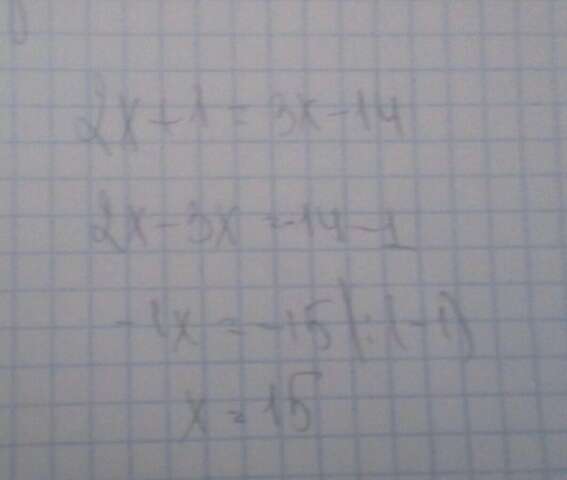 2x+1=3x-14
2x-3x=-14-1
-1x=-15|:(-1)
x=15